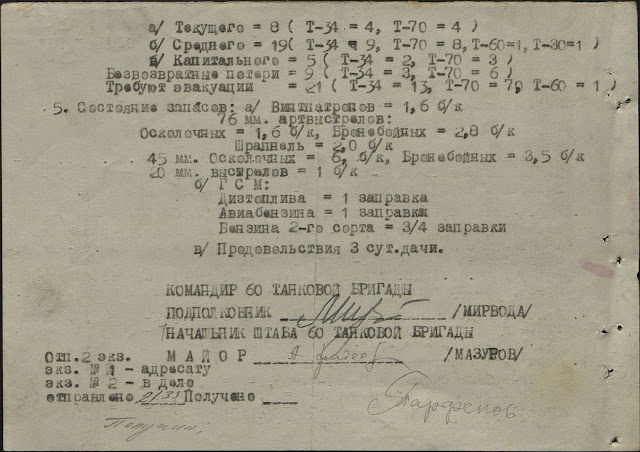 а/ Текущего = 8 ( Т-34 = 4, Т-70 = 4 )
б/ Среднего = 19( Т-34 = 9, Т-70 = 8, Т-60=1, Т-30=1 )
в/ Капитального = 5 ( Т-34 = 2, Т-70 = 3 )
Безвозвратные потери = 9 ( Т-34 = 3, Т-70 = 6 )
Требуют эвакуации = 21 ( Т-34 = 13, Т-70 = 7, Т-60 = 1 )
5. Состояние запасов: а/ Винтпатронов = 1,6 б/к
76 мм. артвыстрелов:
Осколочных = 1,6 б/к, Бронебойных = 2,8 б/к
Шрапнель = 2,0 б/к
45 мм. Осколочных = 6, б/к, Бронебойных = 3,5 б/к
20 мм. выстрелов = 1 б/к
б/ ГСМ:
Дизтоплива = 1 заправка
Авиабензина = 1 заправка
Бензина 2-го сорта = 3/4 заправки
в/ Продовольствия 3 сут.дачи.
КОМАНДИР 60 ТАНКОВОЙ БРИГАДЫ
ПОДПОЛКОВНИК /МИРВОДА/
НАЧАЛЬНИК ШТАБА 60 ТАНКОВОЙ БРИГАДЫ
Отп.2 экз. МАЙОР /МАЗУРОВ/
экз. № 1 - адресату
экз. № 2 - в дело
отправлено Получено
Парфенов